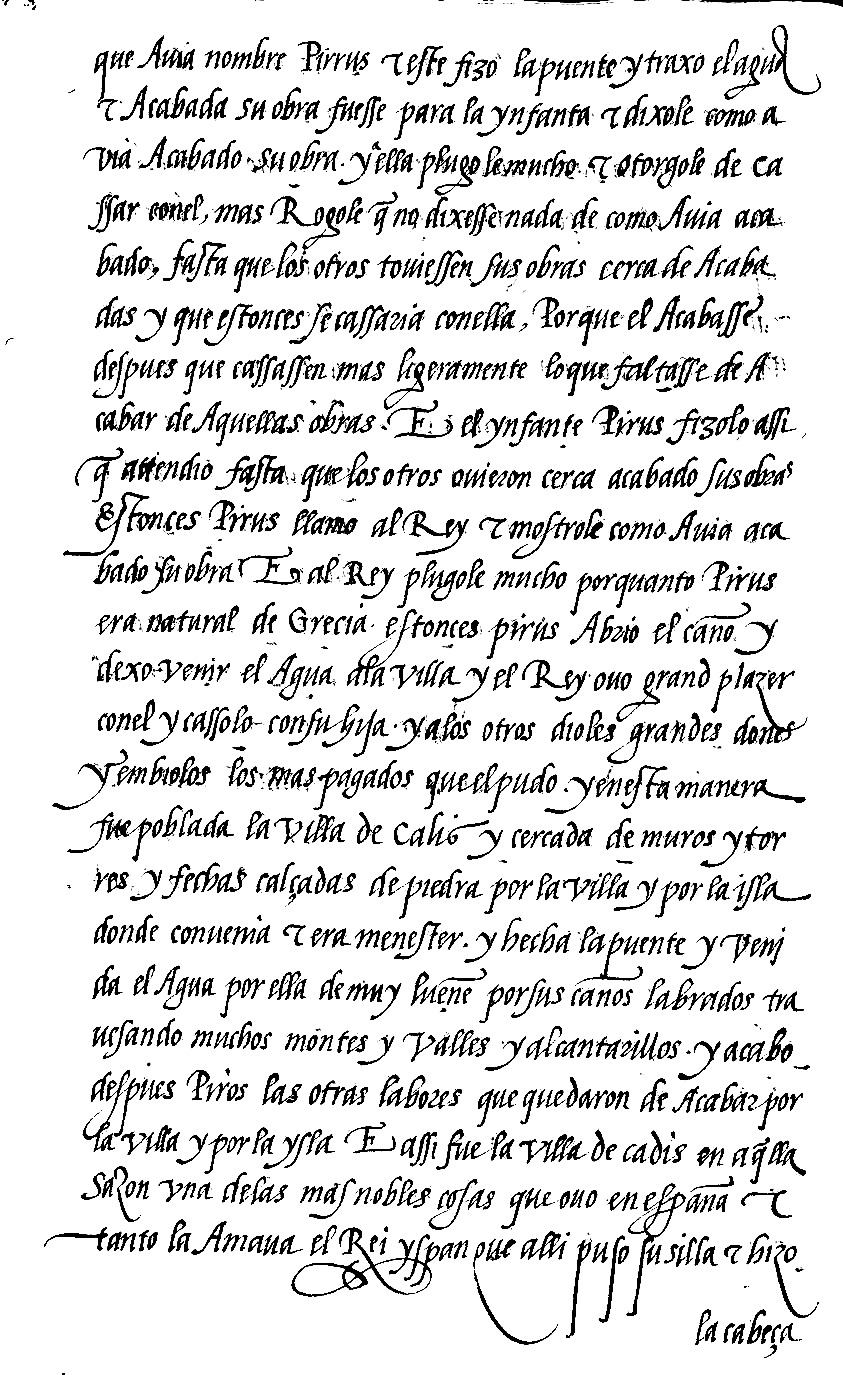 que Auia nombre Pirrus τ este fizo la puente y traxo el agua
τ Acabada su obra fuesse para la ynfanta τ dixole como a
via Acabado su obra. y ella plugo le mucho τ otorgole de ca
ssar conel, mas Rogole q̃ no dixesse nada de como Auia aca
bado, fasta que los otros toviessen sus obras cerca de Acaba
das y que estonces se cassaria conella, Porque el Acabasse
despues que cassassen mas ligeramente lo que faltasse de A
cabar de Aquellas obras. E el ynfante Pirus fizolo assi
q̃ attendio fasta que los otros ouieron cerca acabado sus obras
Estonces Pirus llamo al Rey τ mostrole como Auia aca
bado su obra E al Rey plugole mucho porquanto Pirus
era natural de Grecia estonces pirus Abrio el cano y
dexo venir el Agua ala villa y el Rey ouo grand plazer
conel y cassolo con su hija. y alos otros dioles grandes dones
y embiolos los mas pagados que el pudo. y enesta manera
fue poblada la villa de Calis y cercada de muros y tor
res y fechas calçadas de piedra por la villa y por la isla
donde conuenia τ era menester. y hecha la puente y veni
da el Agua por ella de muy lueñe por sus caños labrados tra
uesando muchos montes y valles y alcantarillos. y acabo
despues Piros las otras labores que quedaron de Acabar por
la villa y por la ysla E assi fue la villa de cadis en aq̃lla
sazon vna delas mas nobles cosas que ouo en españa τ
tanto la Amaua el Rei yspan que alli puso su silla τ hizo
la cabeça